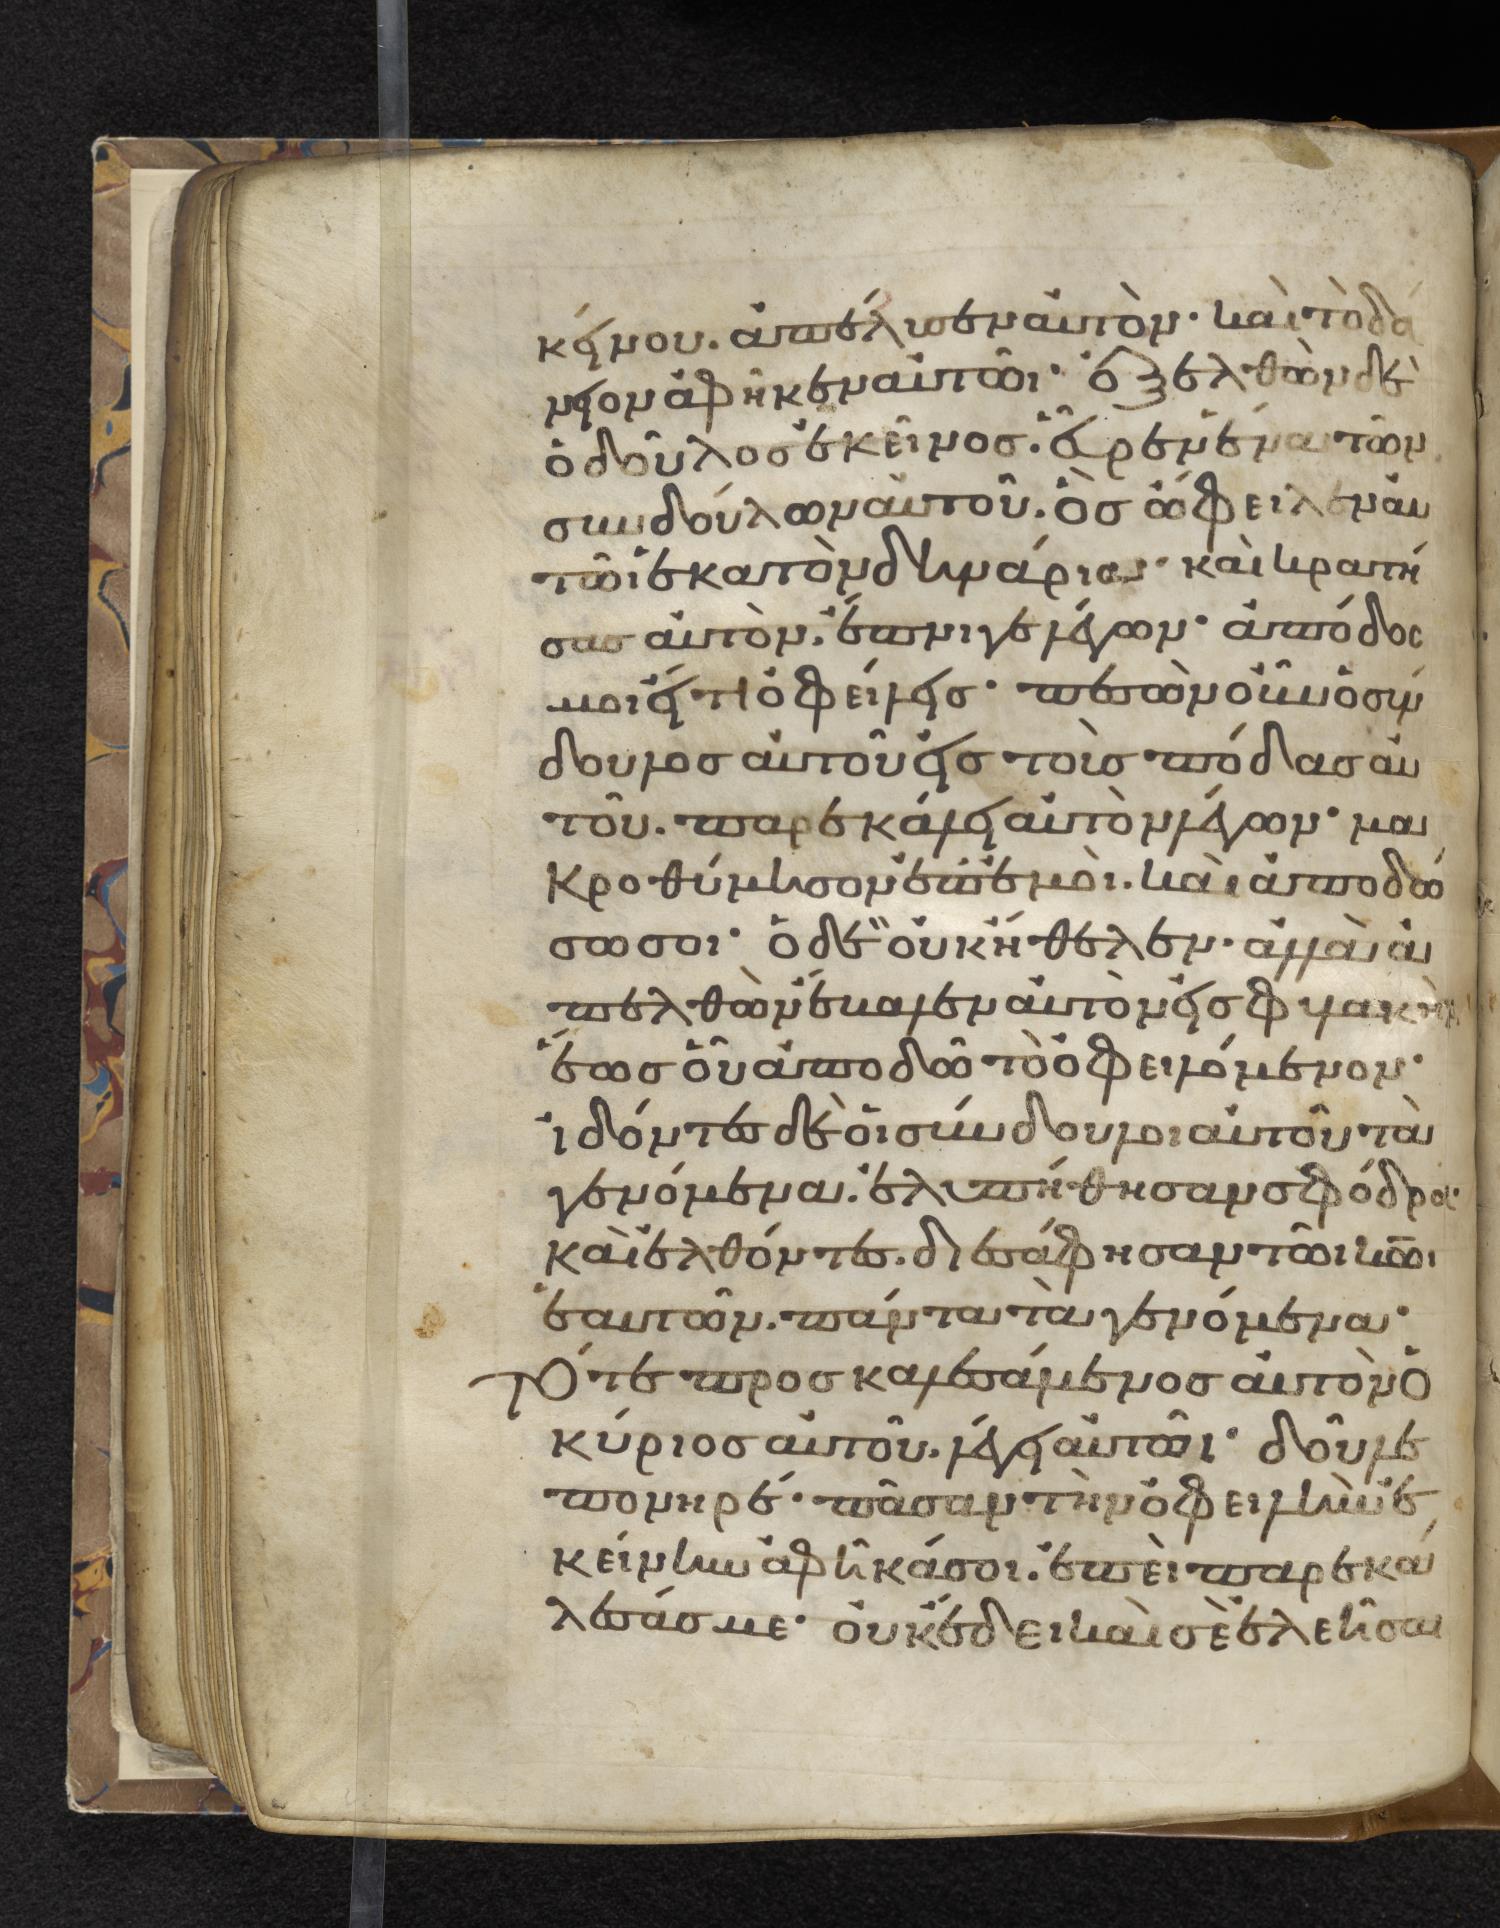 κείνου. ἀπέλυσεν αὐτὸν· καὶ τὸ δά
νειον ἀφῆκεν αὐτῶι· ὁ ἐξελθὼν δὲ
ὁ δοῦλος ἐκεῖνος. εὗρεν ἕνα τῶν
συνδούλων αὐτοῦ. ὃς ὤφειλεν αὐ
τῶι ἑκατὸν δηνάρια· καὶ κρατή
σας αὐτὸν. ἔπνιγε λέγων· ἀπόδος
μοι εἴ τι ὀφείλεις· πεσὼν οὖν ὁ σύν
δουλος αὐτοῦ εἰς τοὺς πόδας αὐ
τοῦ. παρεκάλει αὐτὸν λέγων· μα
κροθύμησον ἐπ' ἐμοὶ. καὶ ἀποδώ
σω σοι· ὁ δὲ οὐκ ἤθελεν· ἀλλὰ ἀ
πελθὼν ἔβαλεν αὐτὸν εἰς φυλακὴν
ἕως οὗ ἀποδῶ τὸ ὀφειλόμενον·
ἰδόντες δὲ οἱ σύνδουλοι αὐτοῦ τὰ
γενόμενα. ἐλυπήθησαν σφόδρα·
καὶ ἐλθόντες. διεσάφησαν τῶι κω̅ι
ἑαυτῶν. πάντα τὰ γενόμενα·
Τότε προσκαλεσάμενος αὐτὸν ὁ
κύριος αὐτοῦ. λέγει αὐτῶι· δοῦλε
πονηρέ· πᾶσαν τὴν ὀφειλὴν ἐ
κείνην ἀφῆκά σοι. ἐπεὶ παρεκά
λεσάς με· οὐκ ἔδει καὶ σὲ ἐλεῆσαι